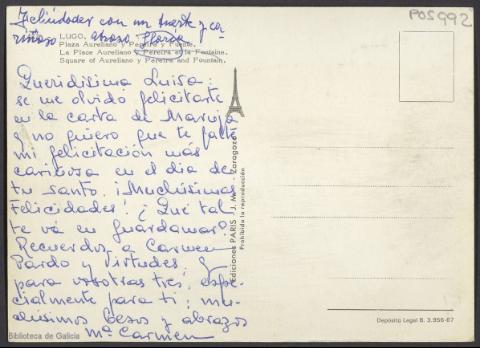 Felicidades con un fuerte y ca-
riñoso abrazo, Gloria
POS992
LUGO.
Plaza Aureliano y Pereira y Fuente.
La Place Aureliano y Pereira et la Fontaine.
Square of Aureliano y Pereira and Fountain.
Queridísima Luisa:
se me olvidó felicitarte
en la carta de Maruja
y no quiero que te falte
mi felicitación más
cariñosa en el día de
tu santo. ¡Muchísimas
Felicidades! ¿Qué tal
te va en Guardamar?
Recuerdos a Carmen
Pardo y Virtudes, y
para vosotras tres, espe-
cialmente para ti, mu-
chísimos besos y abrazos
Mª Carmen
Ediciones PARIS - J. M. - Zaragoza
Prohibida la reproducción
Depósito Legal B. 3.956-67
Biblioteca de Galicia